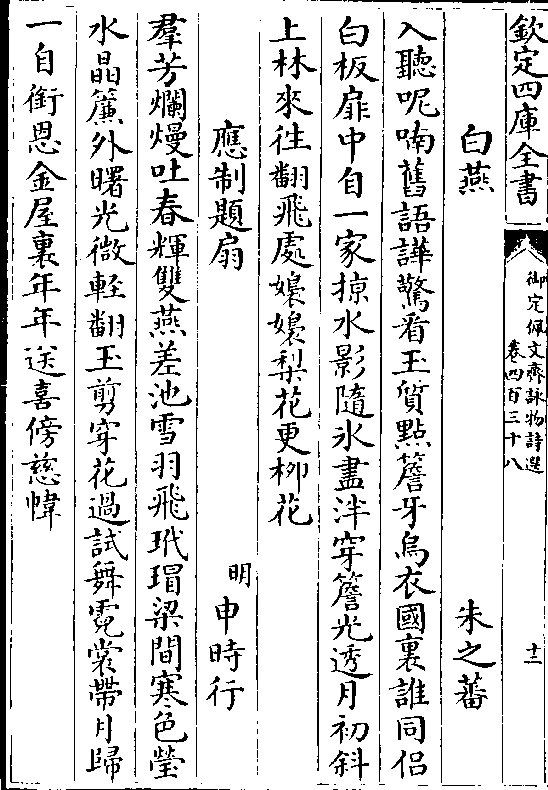 欽定四庫全書
御定佩文齋詠物詩選
卷四百三十八
十二
白燕
朱之蕃
入聽呢喃舊語譁驚看玉質點簷牙烏衣國裏誰同侣
白板扉中自一家掠水影隨氷盡泮穿簷光透月初斜
上林來徃翻飛處嬝嬝梨花更柳花
應制題扇
明申時行
羣芳爛熳吐春輝雙燕差池雪羽飛玳瑁梁間寒色瑩
水晶簾外曙光微輕翻玉剪穿花過試舞霓裳帶月歸
一自銜恩金屋裏年年送喜傍慈幃